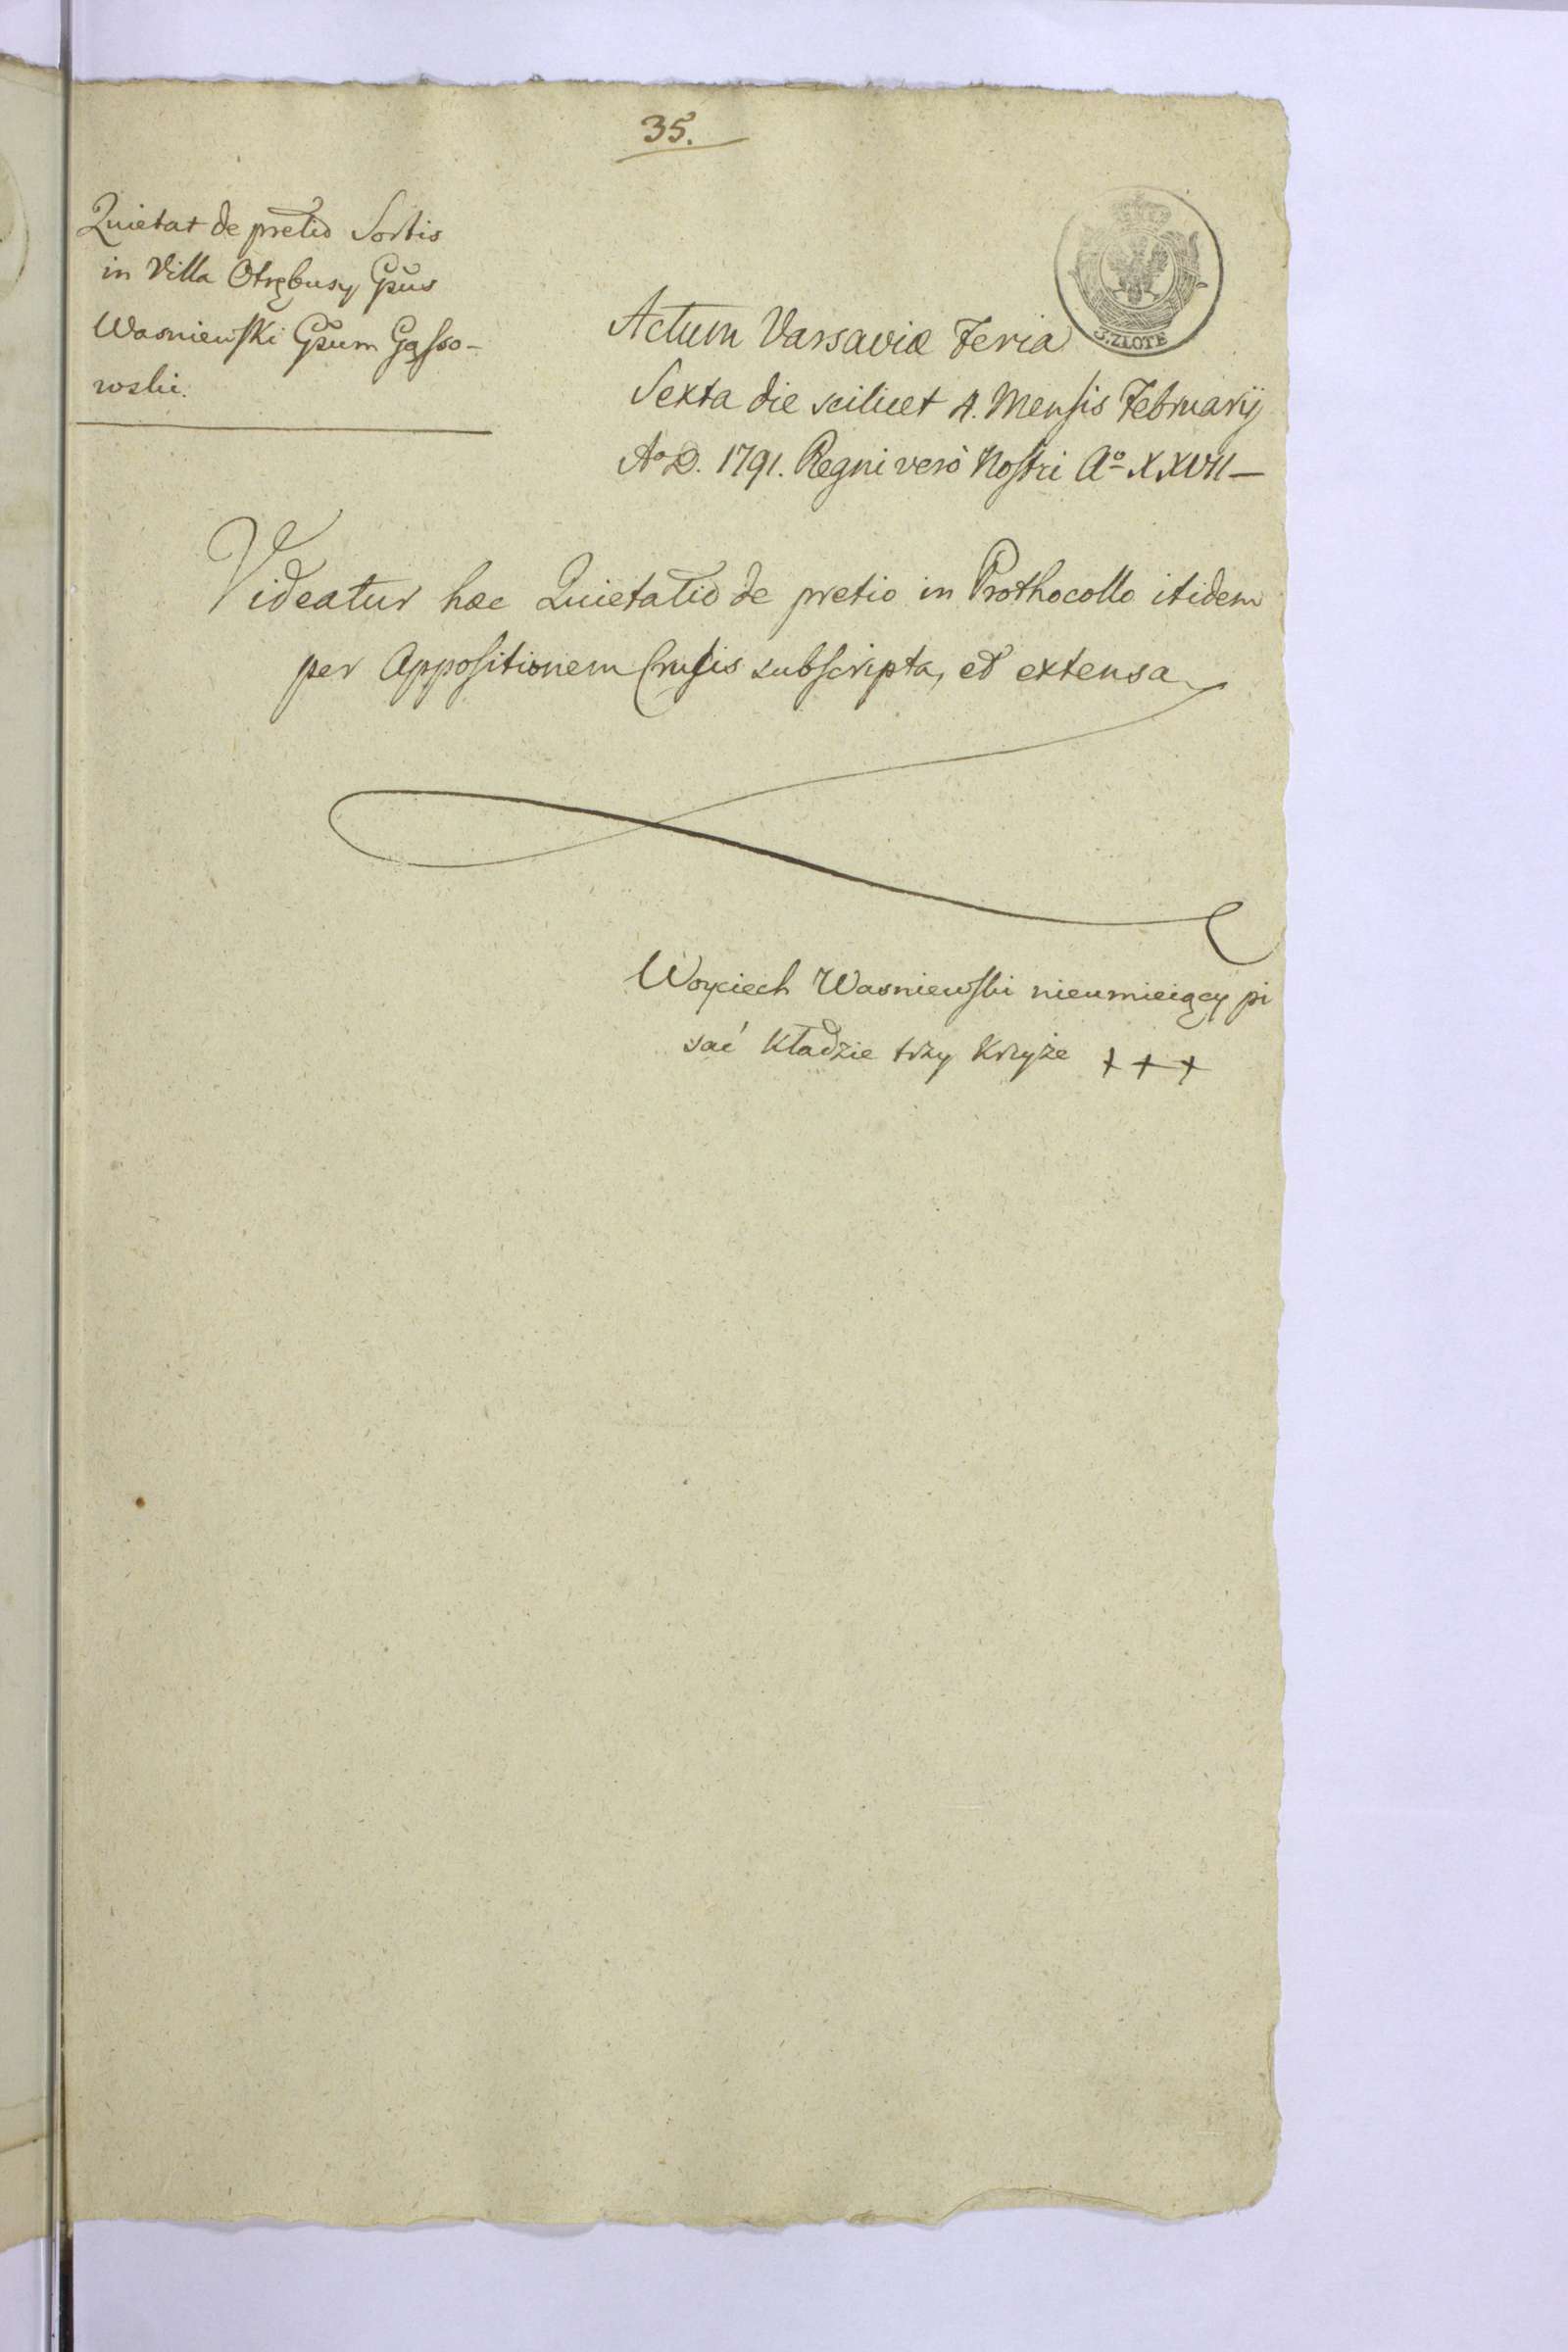 35.
Quietat de pretio Sortis
in Villa Otrębusy Gsus
Wasniewski Gsum Gąsso-
wski.
3. ZŁOTE
Actum Varsaviæ Feria
Sexta die scilicet 4. Mensis Februarij
Aº D. 1791. Regni verò Nostri Aº XXVII—
Videatur hæc Quietatio de pretio in Prothocollo itidem
per Appositionem Crucis subscripta, et extensa
Woyciech Wasniewski nieumieiący pi
sać kładzie trzy Krzyże + + +